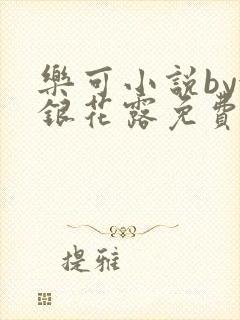 樂可小說by
銀花露免費
提雅